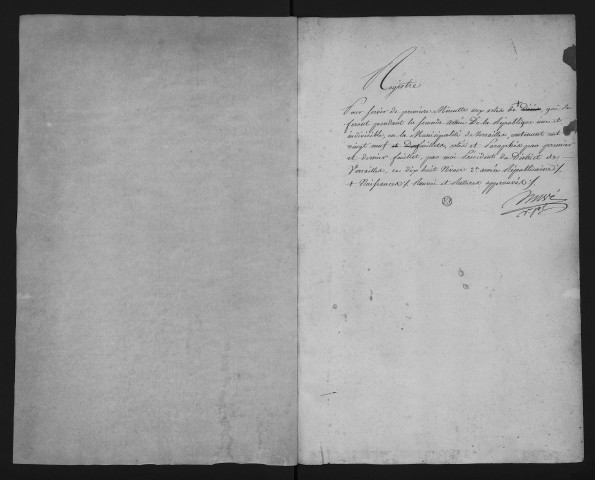 Registre
Pour servir de premiere Minutte aux actes de + qui se
feront pendant la seconde année De la République une et
indivisible, en la Municipalité de Versailles, contenant
vingt neuf feuillets, cotés et Paraphés par premier
et dernier feuillet, par moi President du District de
Versailles, ce dix huit Nivose 2e année Républicaine /.
+ Naissances /. Renvoi et Ratures approuvés /.